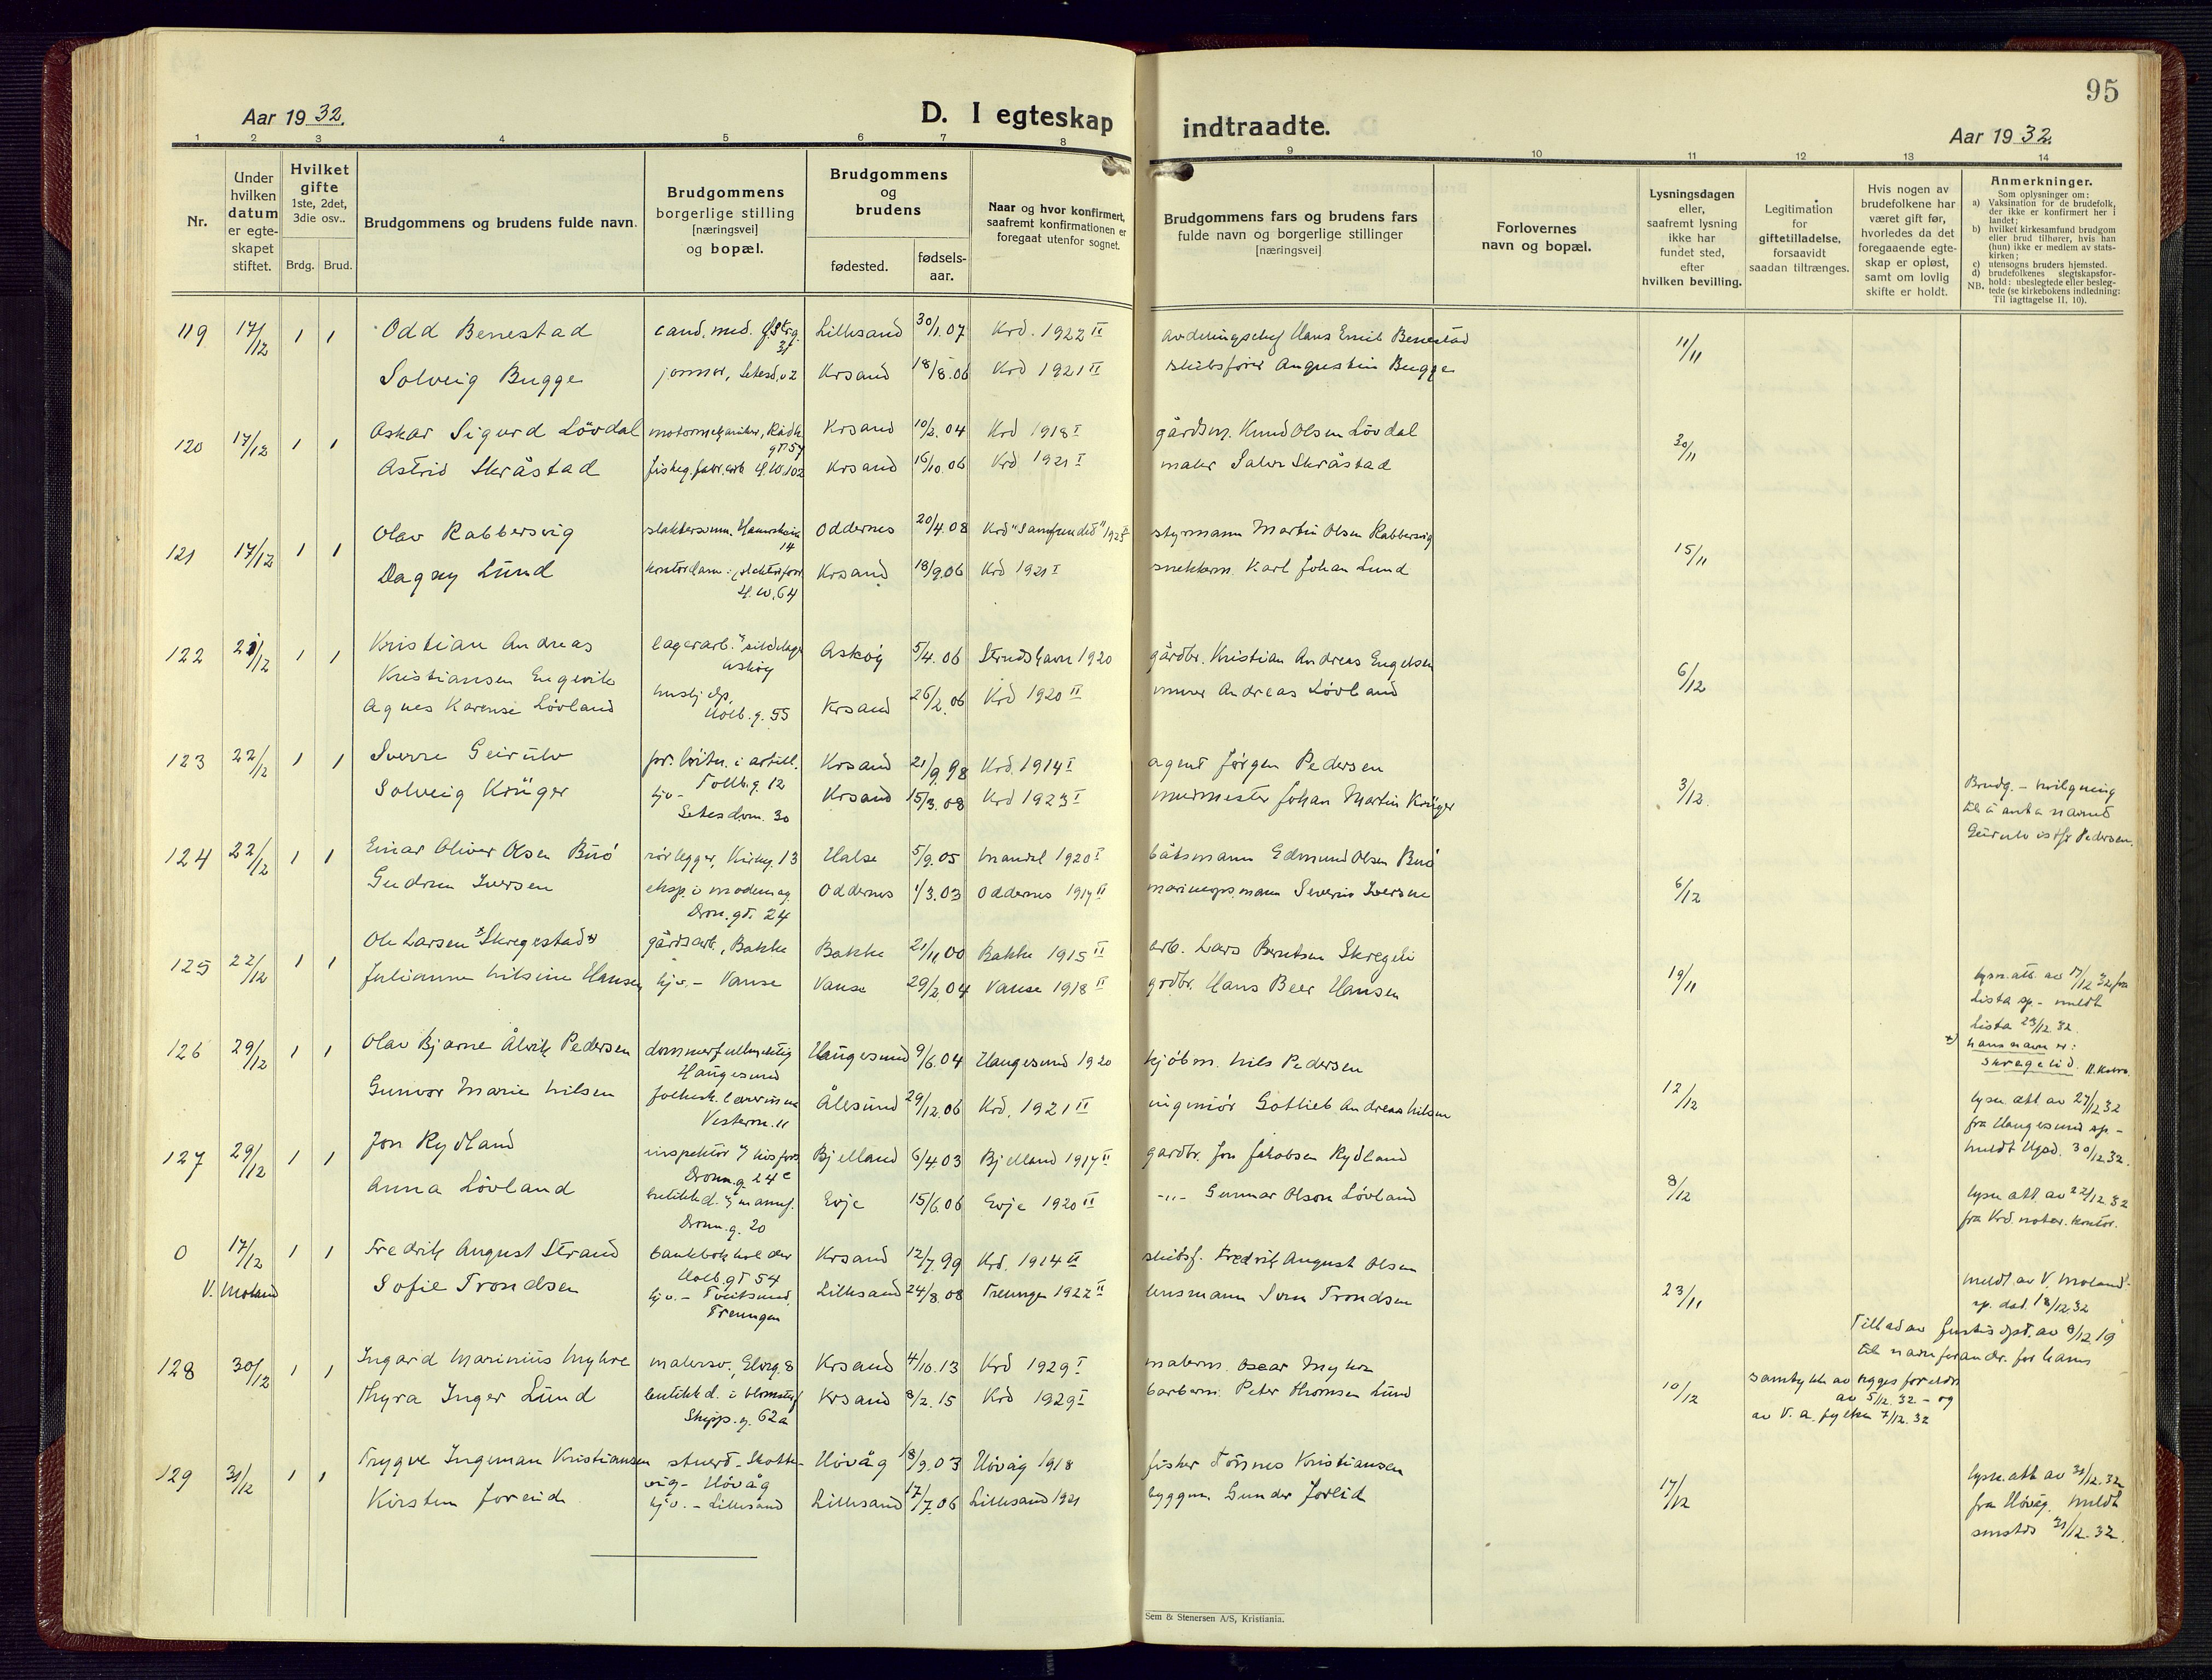 95
Aar 1932.
D. I egteskap indtraadte.
Aar 1932.
1 2 3 4 5 6 7 8 9 10 11 12 13 14
Nr.
Under hvilken datum er egte-skapet stiftet.
Hvilket gifte 1ste, 2det, 3die osv..
Brdg. Brud.
Brudgommens og brudens fulde navn.
Brudgommens borgerlige stilling [næringsvei] og bopæl.
Brudgommens og brudens
fødested.
fødsels-aar.
Naar og hvor konfirmert, saafremt konfirmationen er foregaat utenfor sognet.
Brudgommens fars og brudens fars fulde navn og borgerlige stillinger [næringsvei]
Forlovernes navn og bopæl.
Lysningsdagen eller, saafremt lysning ikke har fundet sted, efter hvilken bevilling.
Legitimation for giftetilladelse, forsaavidt saadan tiltrænges.
Hvis nogen av brudefolkene har været gift før, hvorledes da det foregaaende egte-skap er opløst, samt om lovlig skifte er holdt.
Anmerkninger.
Som oplysninger om:
a) Vaksination for de brudefolk, der ikke er konfirmert her i landet;
b) hvilket kirkesamfund brudgom eller brud tilhører, hvis han (hun) ikke er medlem av stats-kirken;
c) utensogns bruders hjemsted.
d) brudefolkenes slegtskapsfor-hold: ubeslegtede eller besleg-tede (se kirkebokens indledning:
NB. Til iagttagelse II. 10).
119 17/12 1 1 Odd Benestad cand. med. Lillesand 30/1.07 Krd. 1922 II avdelingschef Hans Emil Benestad 11/11
Solveig Bugge Krsand 18/8.06 Krd 1921 II skibsfører Augustin Bugge
120 17/12 1 1 Askar Sigurd Lövdal motormekaniker, Rådh.gt 57 Krsand 10/2.04 Krd 1918 I gårdsm. Knud Olsen Lövdal 30/11
Astrid Skråstad Krsand 16/10.06 Krd 1921 I maler Skråstad
121 17/12 1 1 Olav Rabbersvig Oddernes 20/4.08 Krd "Samfundet" styrmann Martin Olsen Rabbersvig 15/11
Dagny Lund H.W.64 Krsand 18/9.06 Krd 1921 I snekkerm. Karl Johan Lund
122 1 1 Kristian Andreas lagerarb. Askøy 5/4.06 1920 gårdbr. Kristian Andreas Engelsen 6/12
Kristiansen Engevik
Agnes Karense Lövland Holb.g. 55 Krsand 26/2.06 Krd 1920 II murer Andreas Lövland
123 22/12 1 1 Sverre Geirulv Tollb.g. 12 Krsand 21/9.98 Krd. 1914 I agent Jörgen Pedersen 3/12.
Solveig Krüger hjv- Setesd.vn. 30 Krsand 15/3.08 Krd 1923 I murmester Johan Martin Krüger
Brudg. - bevilgning
til å anta navnet
Geirulv istf. Pedersen.
124 22/12 1 1 Einar Oliver Olsen Buö rörlegger, Kirkeg. 13 Halse 5/9.05 Mandal 1920 I båtsmann Edmund Olsen Buö 6/12
Gudrun Iversen Dron. gt. 24 Oddernes 1/3.03 Oddernes 1917 II Severin Iversen
125 22/12 1 1 Ole Larsen Skregestad gårdsarb, Bakke Bakke 21/11.00 Bakke 1915 II arb. Lars Berntsen Skregeli 19/11
Julianne Nilsine Hansen hjv.- Vanse Vanse 29/2.04 Vanse 1918 II grdbr. Hans Beer Hansen
lysn.att. av 17/12 32 fra
Lista sp.- meldt
Lista 23/12.32.
x) hans navn er:
Skregelid.
126 29/12 1 1 Olav Bjarne Ålvik Pedersen dommerfullmektig Haugesund Haugesund 9/6.04 Haugesund 1920 kjöbm. Nils Pedersen 12/12
Gunvor Marie Nilsen folkesk. lærerinne Vesterv. 11 Ålesund 29/12.06 Krd. 1921 II ingeniör Gotlieb Andreas Nilsen
lysn. att av 27/12 32
fra Haugesund sp.-
meldt Hgsd. 30/12 32.
127 29/12 1 1 Jon Rydland Dronn.g. 24 c Bjelland 6/4.03 Bjelland 1917 II gardbr. Jon Jakobsen Rydland 8/12
Anna Lövland Dronn.g. 20 Evje 15/6.06 Evje 1920 II -"- Gunnar Olson Lövland
lysn. att. av 22/12 32
fra Krd. notar. kontor.
0 17/12 1 1 Fredrik August Strand bankbokholder Holb.gt 54 Krsand 12/7.99 Krd. 1914 II skibsf. Fredrik August Olsen 23/11
V. Moland Sofie Trondsen hjv.- Tveitsund, Treungen Lillesand 24/8.08 Treungen 1922 II lensmann Trondsen
meldt av V. Moland
sp. dat. 18/12.32
Tillad. av Justisdpt. av 9/12 19
til navneforandr. for hans
128 30/12 1 1 Ingard Marinius Myhre malersv., Elveg. 8 Krsand 4/10.13 Krd 1929 I malerm. Oscar Myhre 10/12
Thyra Inger Lund Skipp.g. 62a Krsand 8/2.15 Krd 1929 I barberm. Peter Thomsen Lund
samtykke av begges foreldre
av 5/12.32 - og
av V. a. fylke 7/12.32
129 31/12 1 1 Trygve Ingeman Kristiansen stuert- Skotte-vig- Hövåg Hövåg 18/9.03 Hövåg 1918 fisker Tönnes Kristiansen 17/12
Kirsten Joreid hjv.- Lillesand Lillesand 17/7.06 Lillesand 1921 byggm. Gunder Joreid
lysn.att av 31/12.32
fra Hövåg. Meldt
senstds 31/12.32.
Sem & Stenersen A/S, Kristiania.